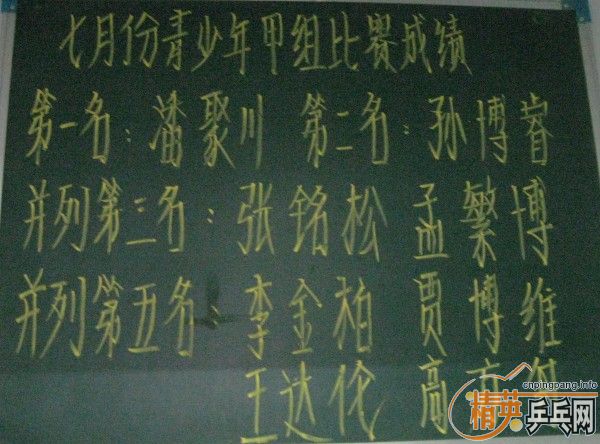 七月份青少年甲组比赛成绩
第一名：潘聚川 第二名：孙博睿
并列第三名：张铭松 孟繁博
并列第五名：李金柏 贾博维
王达伦 高
cnpingpang.info
精英乒乓网